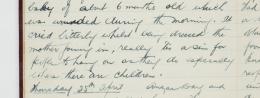 baby of about 6 months old which
was wounded during the morning. It
cried bitterly whilst being dressed the
mother joining in, really its a sin for
people to hang on as they do especially
when there are children.
Thursday 25th April and